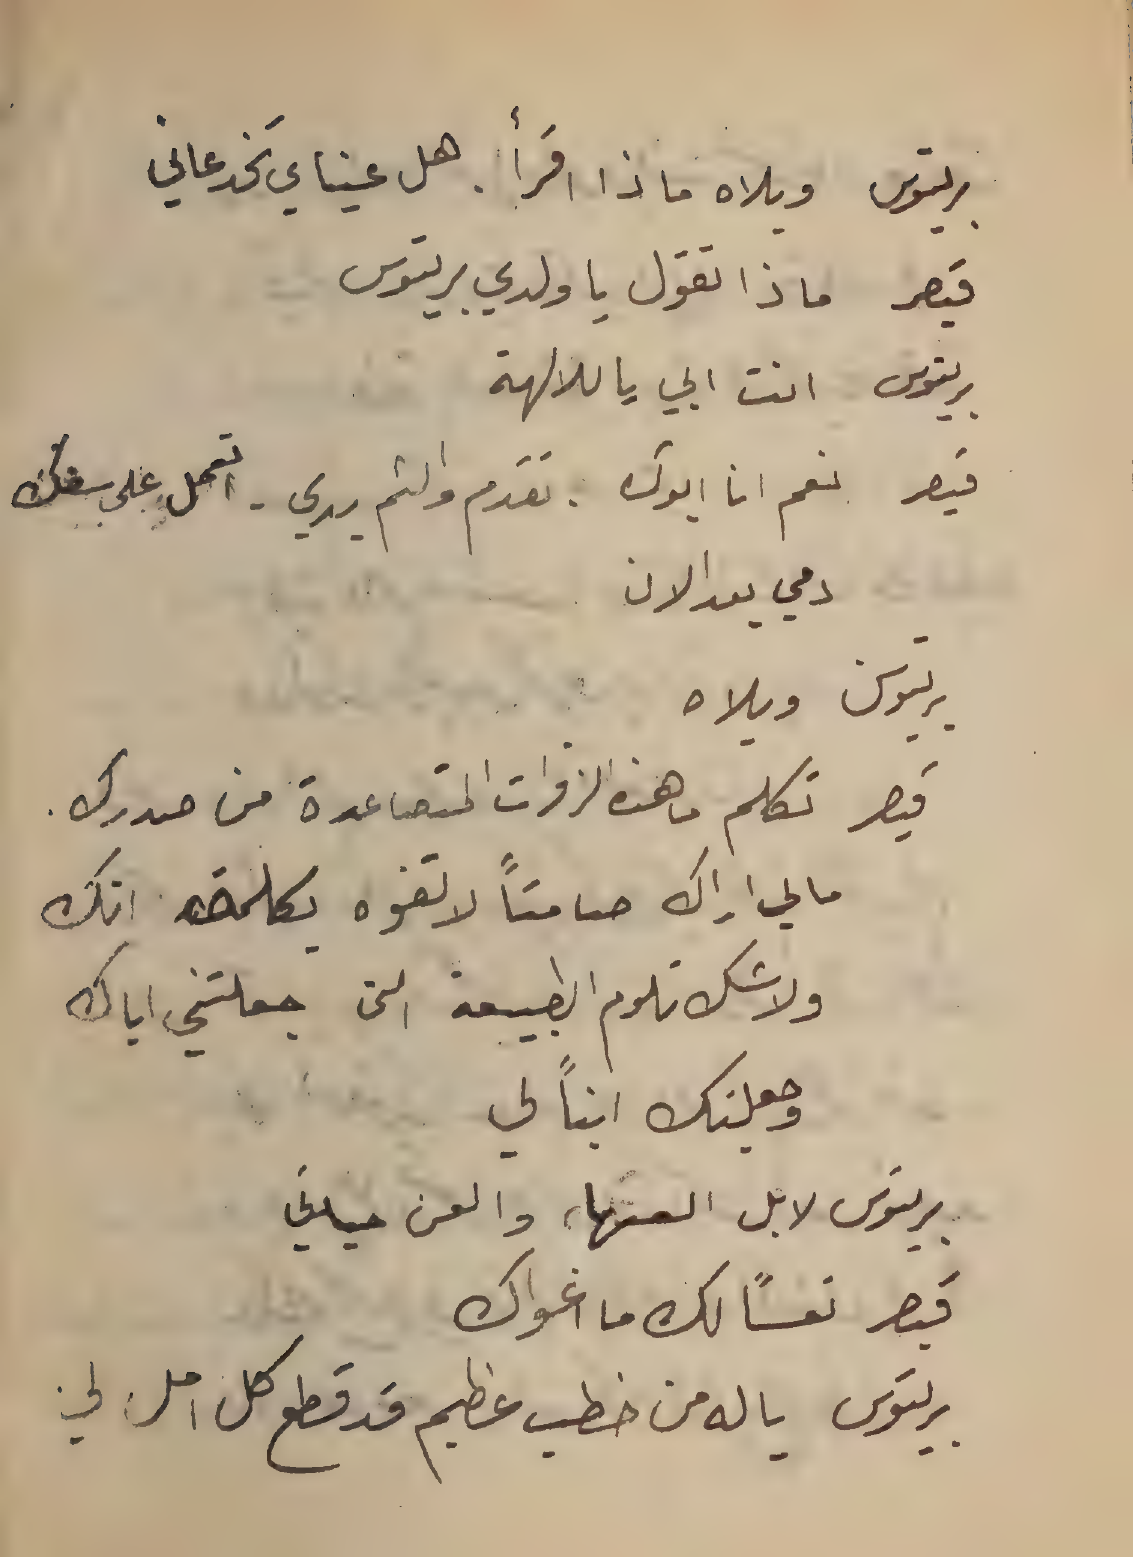 بريتوس ويلاه ماذا اقرأ . هل عيناي تخدعاني
قيصر ماذا تقول يا ولدي بريتوس
بريتوس انت ابي يا للالهة
قيصر نعم انا ابوك . تقدم والثم يدي . اتعمل على سفك
دمي بعد الان
بريتوس ويلاه
قيصر تكلم ما هذه الزفرات المتصاعدة من صدرك .
مالي اراك صامتاً لا تفوه بكلمة انك
ولا شك تلوم الطبيعة التي جعلتني اباك
وجعلتك ابناً لي
بريتوس لا بل العنها، والعن حياتي
قيصر تعسًا لك ما اغواك
بريتوس يا له من خطب عظيم قد قطع كل امل لي